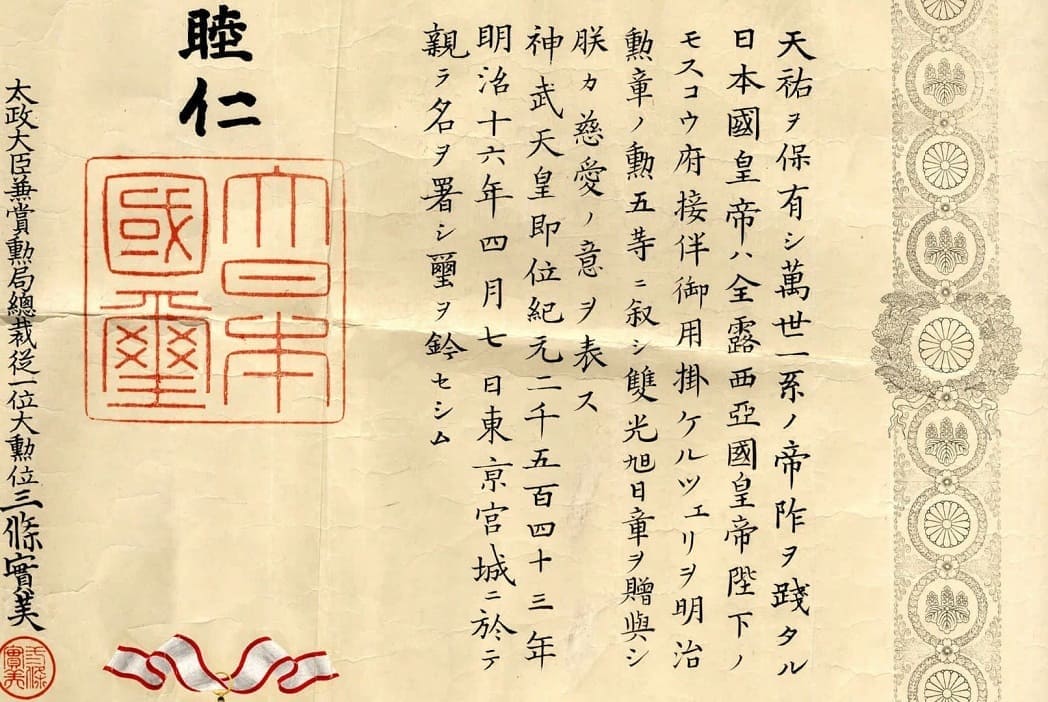 天祐ヲ保有シ萬世一系ノ帝阼ヲ踐タル
日本國皇帝ハ全露西亞國皇帝陛下ノ
モスコウ府接伴御用掛ケルツェリヲ明治
勲章ノ勲五䓁ニ叙シ雙光旭日章ヲ贈與シ
朕カ慈愛ノ意ヲ表ス
神武天皇即位紀元二千五百四十三年
明治十六年四月七日東亰宮城ニ於テ
親ラ名ヲ署シ璽ヲ鈐セシム
睦仁
大日本
國璽
太政大臣兼賞勲局總裁従一位大勲位三條實美
三條
實美